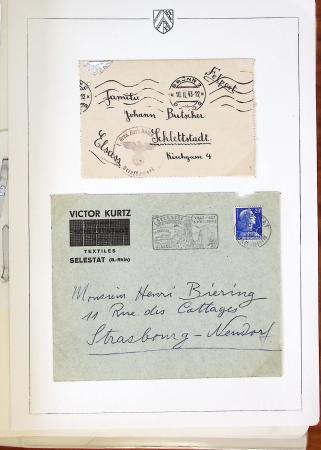 BRÜNN 2
10.II.43-12
Feldpost
Familie
Johann Butscher
Schlettstadt.
Elsass
Kirchgasse 4
VICTOR KURTZ
TEXTILES
SELESTAT (B.-Rhin)
Monsieur Henri Biering
11 Rue des Cottages
Strasbourg-Neudorf